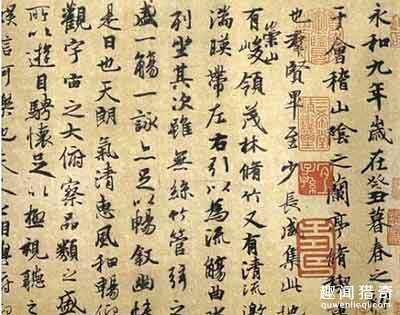 永和九年歲在癸丑暮春之
于會稽山陰之蘭亭脩禊
也羣賢畢至少長咸集此地
有崇山峻領茂林脩竹又有清流激
湍暎帶左右引以為流觴曲水
列坐其次雖無絲竹管弦之
盛一觴一詠亦足以暢敘幽情
是日也天朗氣清惠風和暢仰
觀宇宙之大俯察品類之盛
所以遊目騁懷足以極視聽之
娛信可樂也夫人之相與
趣闻猎奇
quwenlieqi.com